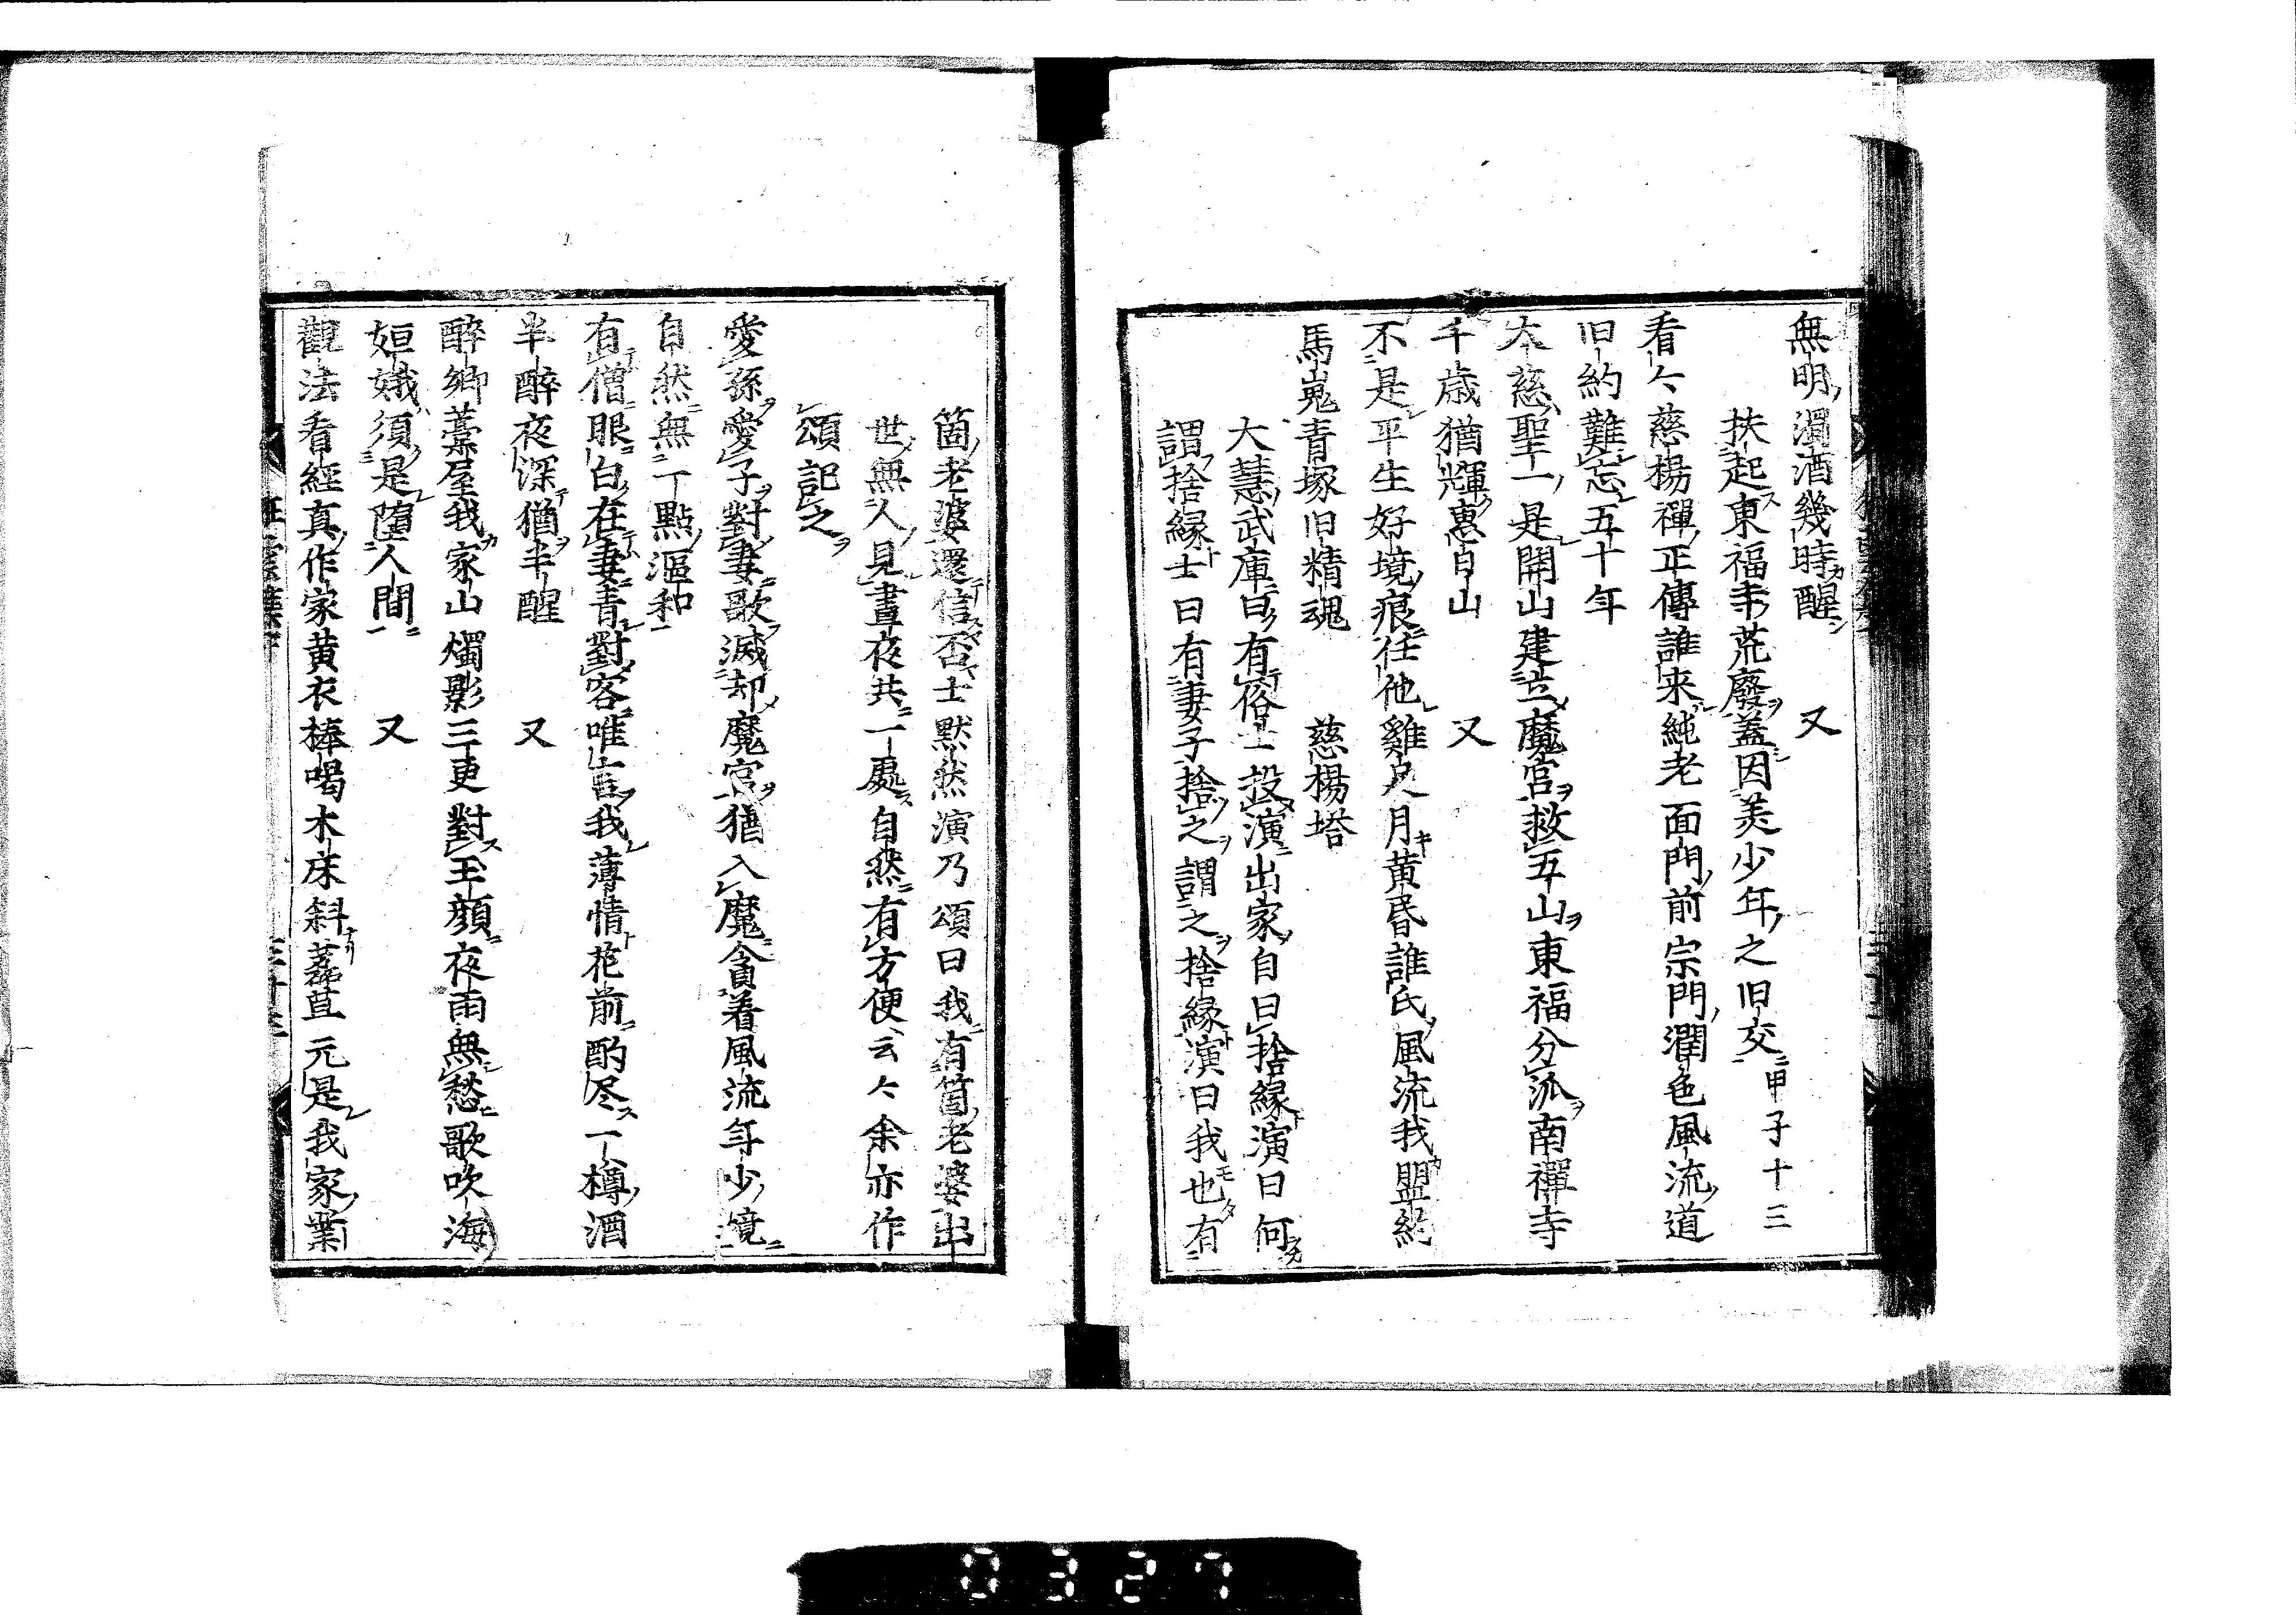 無明濁酒幾時醒　又
扶起東福寺荒廢蓋因美少年之旧交甲子十三
看々慈楊禪正傳誰来純老面門前宗門潤色風流道
旧約難忘五十年
大慈聖一是開山建立魔宮救五山東福分派南禪寺
千歳猶輝惠日山　又
不是平生好境痕任他雞足月黄昏誰氏風流我盟約
馬嵬青塚旧精魂　慈楊塔
大慧武庫曰有俗士投演出家自曰捨縁演曰何
謂捨縁士曰有妻子捨之謂之捨縁演曰我也有
箇老婆還信否士默然演乃頌曰我有箇老婆出
世無人見晝夜共一處自然有方便云々余亦作
頌記之
愛孫愛子對妻歌滅却魔宮猶入魔貪着風流年少境
自然無一點漚和
有僧眼白在妻青對客唯言我薄情花前酌尽一樽酒
半醉夜深猶半醒　又
醉鄉藁屋我家山燭影三更對玉顔夜雨無愁歌吹海
姮娥須是墮人間　又
觀法看經真作家黄衣棒喝木床斜藞苴元是我家業
狂雲集下
0327